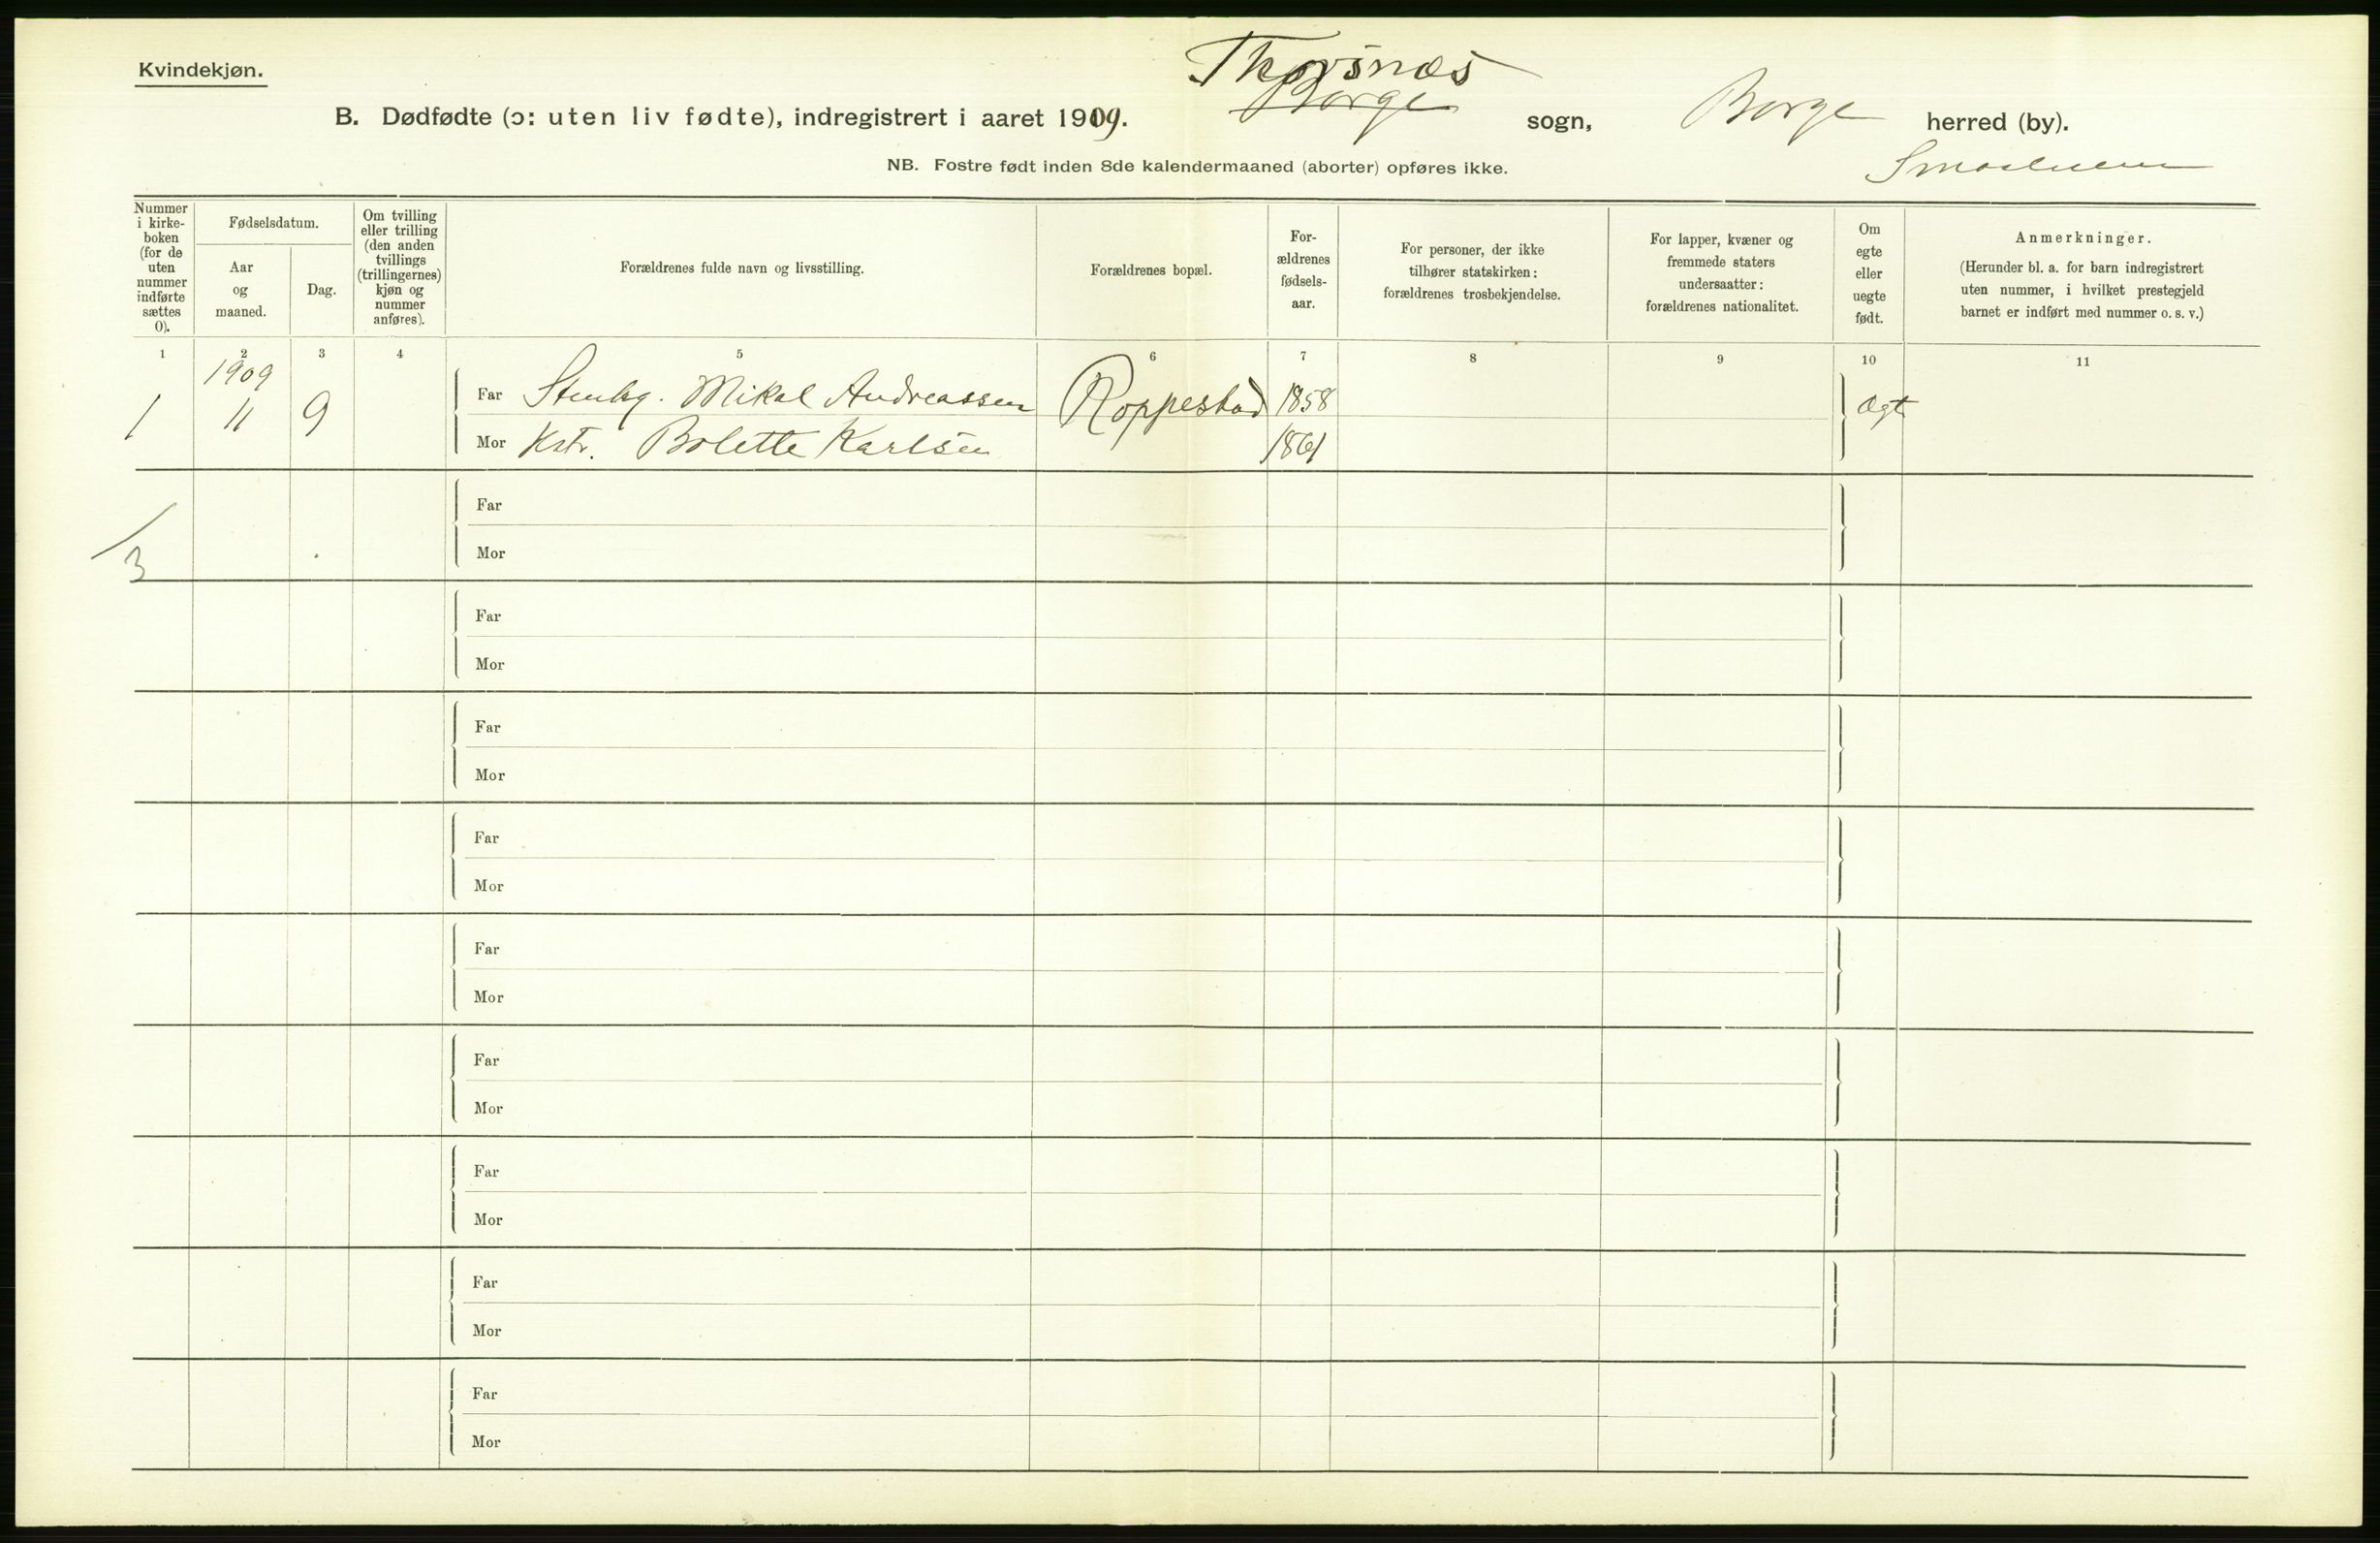 Kvindekjøn.
Thorsnæs
B. Dødfødte (ɔ: uten liv fødte), indregistrert i aaret 1909. Borge sogn, Borge herred (by).
NB. Fostre født inden 8de kalendermaaned (aborter) opføres ikke.
Smaalenene
Nummer i kirke-boken (for de uten nummer indførte sættes 0).
Fødselsdatum.
Aar og maaned.
Dag.
Om tvilling eller trilling (den anden tvillings (trillingernes) kjøn og nummer anføres).
Forældrenes fulde navn og livsstilling.
Forældrenes bopæl.
For-ældrenes fødsels-aar.
For personer, der ikke tilhører statskirken: forældrenes trosbekjendelse.
For lapper, kvæner og fremmede staters undersaatter: forældrenes nationalitet.
Om egte eller uegte født.
Anmerkninger.
(Herunder bl. a. for barn indregistrert uten nummer, i hvilket prestegjeld barnet er indført med nummer o. s. v.)
1 2 3 4 5 6 7 8 9 10 11
1909
1 11 9 Far Stenhg. Mikal Andreassen Roppestad 1858 Ægt
Mor Kstr. Bolette Karlsen 1861
Far
3 Mor
Far
Mor
Far
Mor
Far
Mor
Far
Mor
Far
Mor
Far
Mor
Far
Mor
Far
Mor